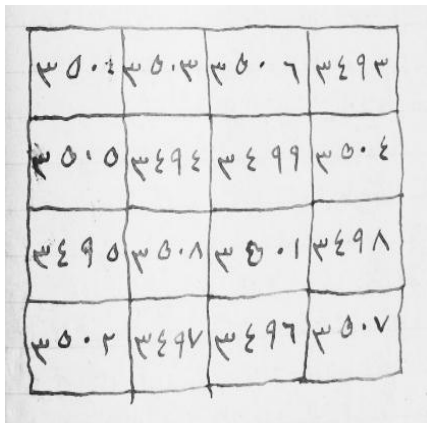 ٣٥٠٣ ٣٥٠٦ ٣٤٩٣
٣٥٠٥ ٣٤٩٤ ٣٤٩٩ ٣٥٠٤
٣٤٩٥ ٣٥٠٨ ٣٥٠١ ٣٤٩٨
٣٥٠٢ ٣٤٩٨ ٣٤٩٦ ٣٥٠٧